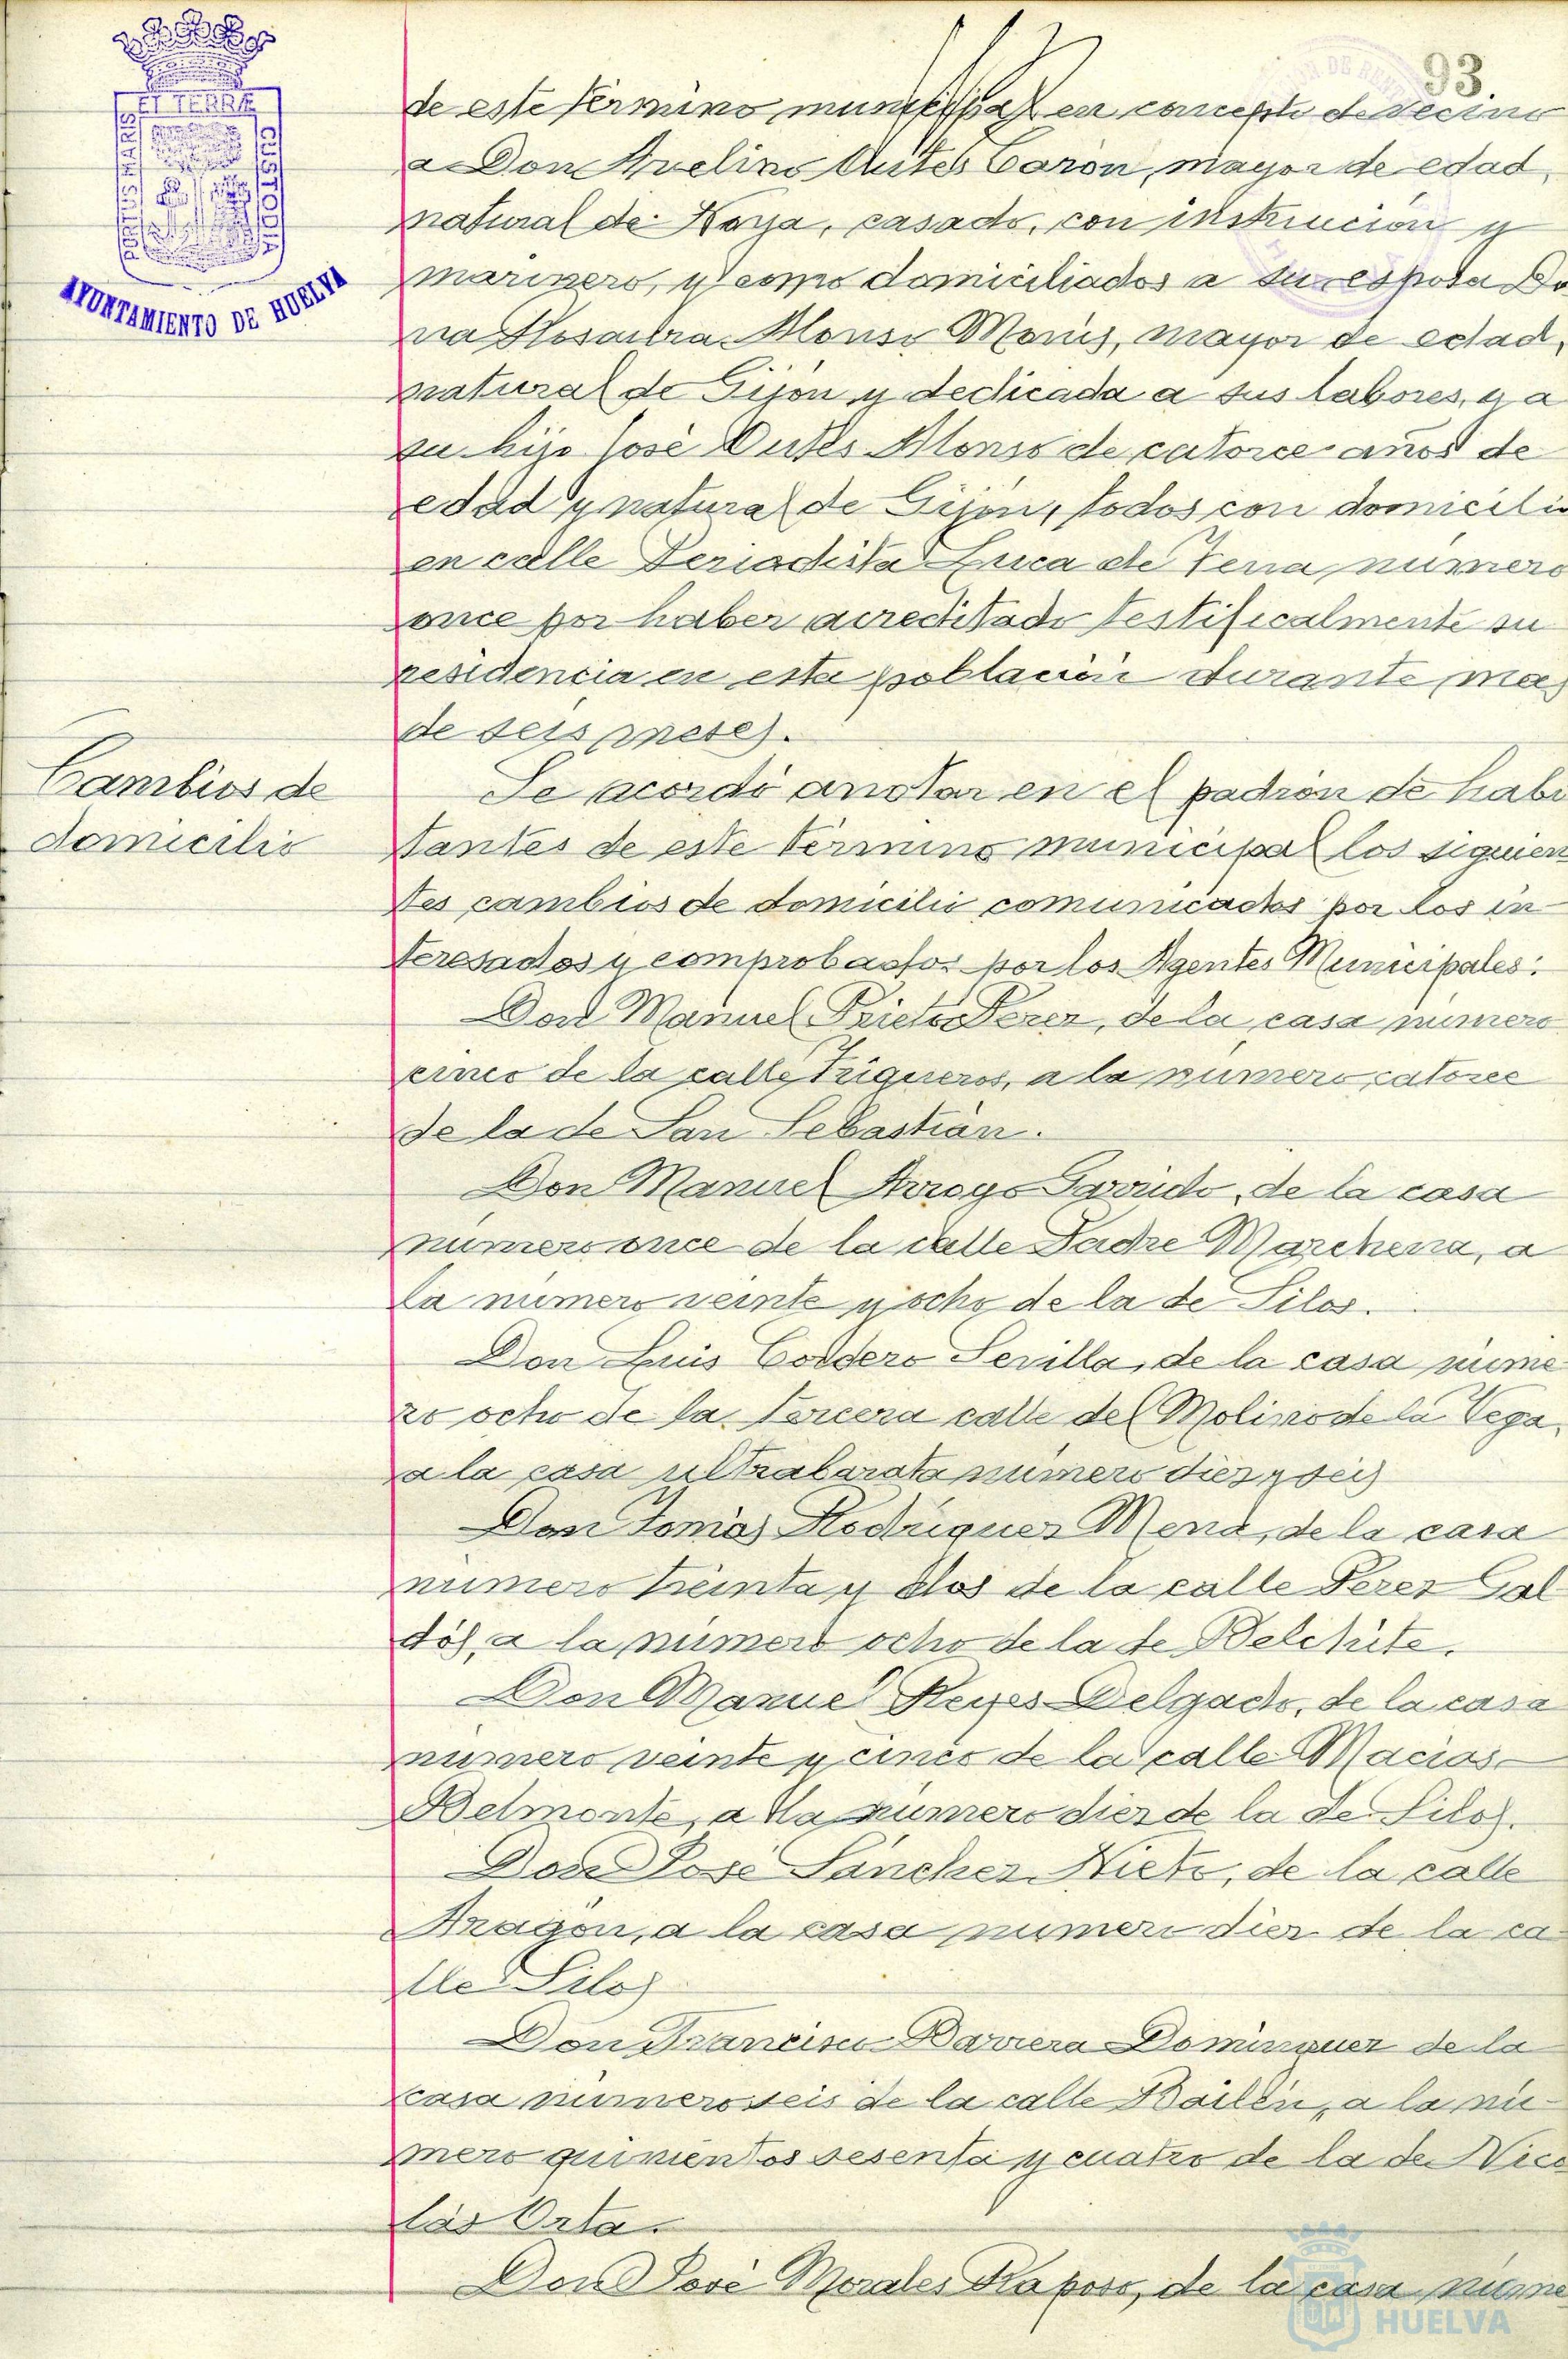 93
ET TERRÆ
AYUNTAMIENTO DE HUELVA
de este término municipal en concepto de vecino
a Don Avelino Autes Carón, mayor de edad,
natural de Noya, casado, con instrucción y
marinero, y como domiciliados a su esposa Do
ña Rosaura Alonso Monis, mayor de edad,
natural de Gijón y dedicada a sus labores, y a
su hijo José Autes Alonso de catorce años de
edad y natural de Gijón, todos con domicilio
en calle Periodista Luca de Tena, número
once por haber acreditado testificalmente su
residencia en esta población durante mas
de seis meses.
Cambios de
domicilio
Se acordó anotar en el padrón de habi
tantes de este término municipal los siguien
tes cambios de domicilio comunicados por los in-
teresados y comprobados por los Agentes Municipales:
Don Manuel Prieto Perez, de la casa número
cinco de la calle Trigueros, a la número catorce
de la de San Sebastián.
Don Manuel Arroyo Garrido, de la casa
número once de la calle Padre Marchena, a
la número veinte y ocho de la de Silos.
Don Luis Cordero Sevilla, de la casa núme
ro ocho de la Tercera calle del Molino de la Vega,
a la casa ultrabarata número diez y seis
Don Tomas Rodriguez Mena, de la casa
número treinta y dos de la calle Perez Gal
dós, a la número ocho de la de Belchite.
Don Manuel Reyes Delgado, de la casa
número veinte y cinco de la calle Macias
Belmonte, a la número diez de la de Silos.
Don José Sánchez Nieto, de la calle
Aragón, a la casa número diez de la ca-
lle Silos
Don Francisco Barriera Dominguez de la
casa número seis de la calle Bailén, a la nú-
mero quinientos sesenta y cuatro de la de Nico
lás Orta.
Don José Morales Raposo, de la casa núme
HUELVA